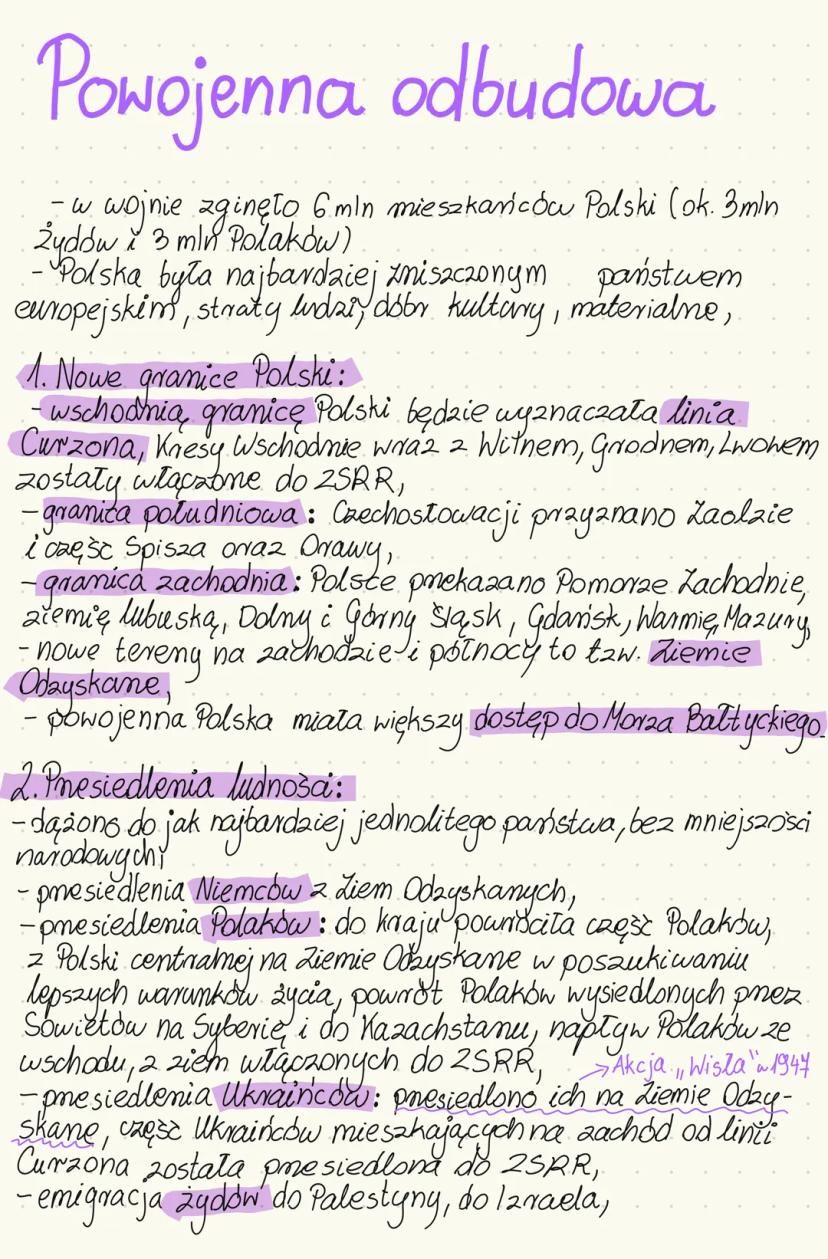 Powojenna odbudowa
- w wojnie zginęło 6 mln mieszkańców Polski (ok. 3mln
Żydów i 3 mln Polaków)
- Polska była najbardziej zniszczonym państwem
europejskim, straty ludzi, dóbr kultury, materialne,
1. Nowe granice Polski:
- wschodnią granicę Polski będzie wyznaczała linia
Curzona, Kresy Wschodnie wraz z Wilnem, Grodnem, Lwowem
zostały włączone do ZSRR,
- granica południowa: Czechosłowacji przyznano Zaolzie
i część Spisza oraz Orawy,
- granica zachodnia: Polsce przekazano Pomorze Zachodnie,
ziemię lubuską, Dolny i Górny Śląsk, Gdańsk, Warmię, Mazury,
- nowe tereny na zachodzie i północy to tzw. Ziemie
Odzyskane,
- powojenna Polska miała większy dostęp do Morza Bałtyckiego.
2. Przesiedlenia ludności:
- dążono do jak najbardziej jednolitego państwa, bez mniejszości
narodowych;
- przesiedlenia Niemców z Ziem Odzyskanych,
- przesiedlenia Polaków: do kraju powróciła część Polaków,
z Polski centralnej na Ziemie Odzyskane w poszukiwaniu
lepszych warunków życia, powrót Polaków wysiedlonych przez
Sowietów na Syberię i do Kazachstanu, napływ Polaków ze
wschodu, z ziem włączonych do ZSRR,
→ Akcja „Wisła" w 1947
- przesiedlenia Ukraińców: przesiedlono ich na Ziemie Odzy-
skane, część Ukraińców mieszkających na zachód od linii
Curzona została przesiedlona do ZSRR,
- emigracja żydów do Palestyny, do Izraela,